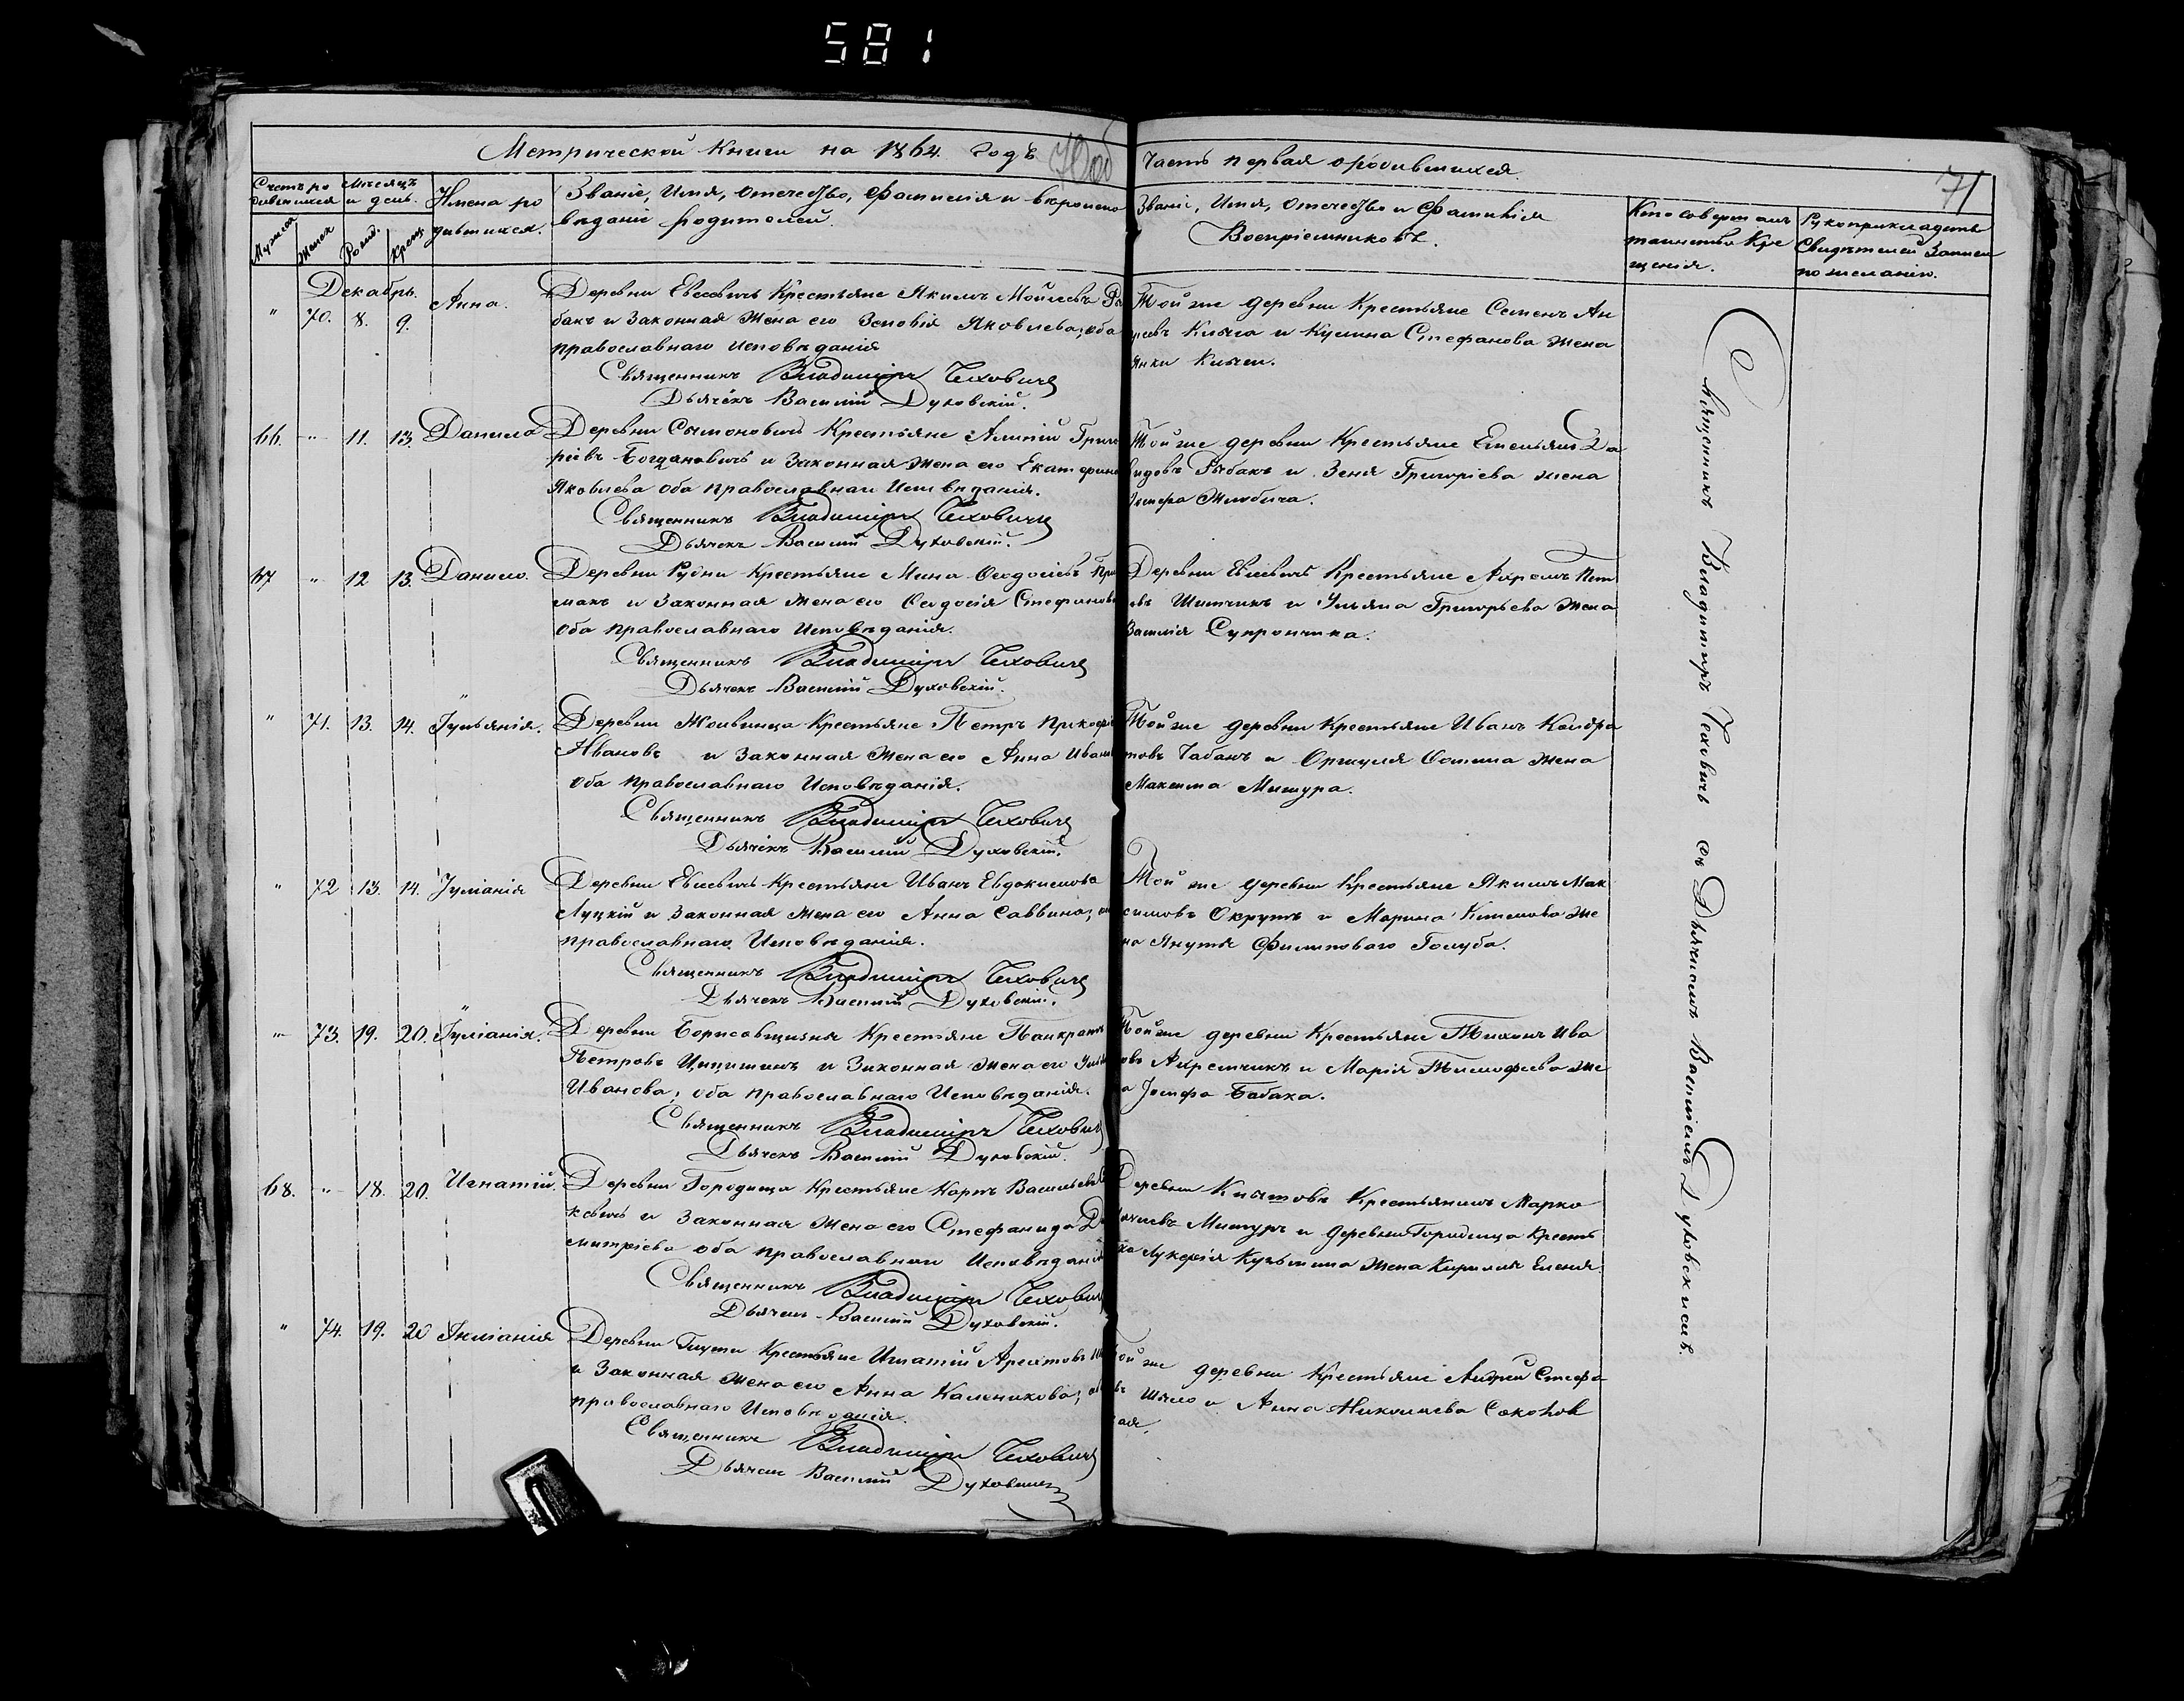 581
Метрической Книги на 1864. годъ
Часть первая о родившихся.
71
Счетъ ро
дившихся
Мѣсяцъ
и день.
Имена ро
дившихся.
Званіе, Имя, Отечество, Фамилія и вѣроиспо
вѣданіе родителей.
Званіе, Имя, Отечество и Фамилія
Воспріемниковъ.
Кто совершалъ
таинство Кре
щенія.
Рукоприкладство
Свидѣтелей Записи
по желанію.
Мужеск
Женск
Рожд.
Крещ.
Декабрь.
" 70. 8. 9. Анна.
Деревни Евсевичъ Крестьяне Якимъ Моисеевъ
бакъ и Законная Жена его Зеновія Яковлева; оба
православнаго исповѣданія
Священникъ Владиміръ Чеховичъ
Дьячекъ Василій Духовскій.
Той же деревни Крестьяне Семенъ Ан
Клыга и Кулина Стефанова Жена
Янки Клыги.
66. " 11. 13. Данило
Деревни Сымоновичъ Крестьяне Григо
ріевъ Богдановичъ и Законная жена его Екатерина
Яковлева оба православнаго Исповѣданія.
Священникъ Владиміръ Чеховичъ
Дьячекъ Василій Духовскій.
Той же деревни Крестьяне Емельянъ Да
видовъ Рыбакъ и Зеня Григоріева жена
67 " 12 13. Данило.
Деревни Рудни Крестьяне Мина Ѳеодосіевъ При
макъ и Законная Жена его Ѳеодосія Стефанова
Оба православнаго Исповѣданія.
Священникъ Владиміръ Чеховичъ
Дьячекъ Василій Духовскій.
Деревни Евсевичъ Крестьяне Ахремъ Пет
овъ Шитчикъ и Ульяна Григорьева Жена
Василія Супрончика.
" 71. 13. 14. Іульянія.
Деревни Крестьяне Петръ
Ивановъ и Законная Жена его Анна Иванова
оба православнаго Исповѣданія.
Священникъ Владиміръ Чеховичъ
Дьячекъ Василій Духовскій.
Той же деревни Крестьяне Иванъ Кондра
товъ Чабанъ и Ѳомина жена
Максима Мишура.
" 72 13. 14. Іуліанія
Деревни Евсевичъ Крестьяне Иванъ Евдокимовъ
Луцкій и Законная Жена его Анна Саввина;
православнаго Исповѣданія.
Священникъ Владиміръ Чеховичъ
Дьячекъ Василій Духовскій.
Той же деревни Крестьяне Якимъ Мак
симовъ Окрутъ и Марина Климова Же
на Филиповаго Голуба.
" 73. 19. 20. Іуліанія.
Деревни Борисовщизна Крестьяне Панкратъ
Петровъ и Законная Жена его
Иванова; оба православнаго Исповѣданія.
Священникъ Владиміръ Чеховичъ
Дьячекъ Василій Духовскій.
Той же деревни Крестьяне Тихонъ Ива
овъ Ахремчикъ и Марія Тимофеева Же
а Іосифа Бабака.
68. " 18. 20. Игнатій.
Деревни Городища Крестьяне Карпъ Васильевъ
и Законная Жена его Стефанида Д
митріева оба православнаго Исповѣданія
Священникъ Владиміръ Чеховичъ
Дьячекъ Василій Духовскій.
Деревни Крестьянинъ Марко
Мишуръ и деревни Городища Кресть
ка Лукерія Кузьмина Жена Кирилла
" 74. 19. 20
Деревни Крестьяне Игнатій
и Законная Жена его Анна
православнаго Исповѣданія.
Священникъ Владиміръ Чеховичъ
Дьячекъ Василій Духовскій
Той же деревни Крестьяне Андрей Стефа
Шило и Анна Николаева Соколов
ая.
Священникъ Владиміръ Чеховичъ съ Дьячкомъ Василіемъ Духовскимъ.